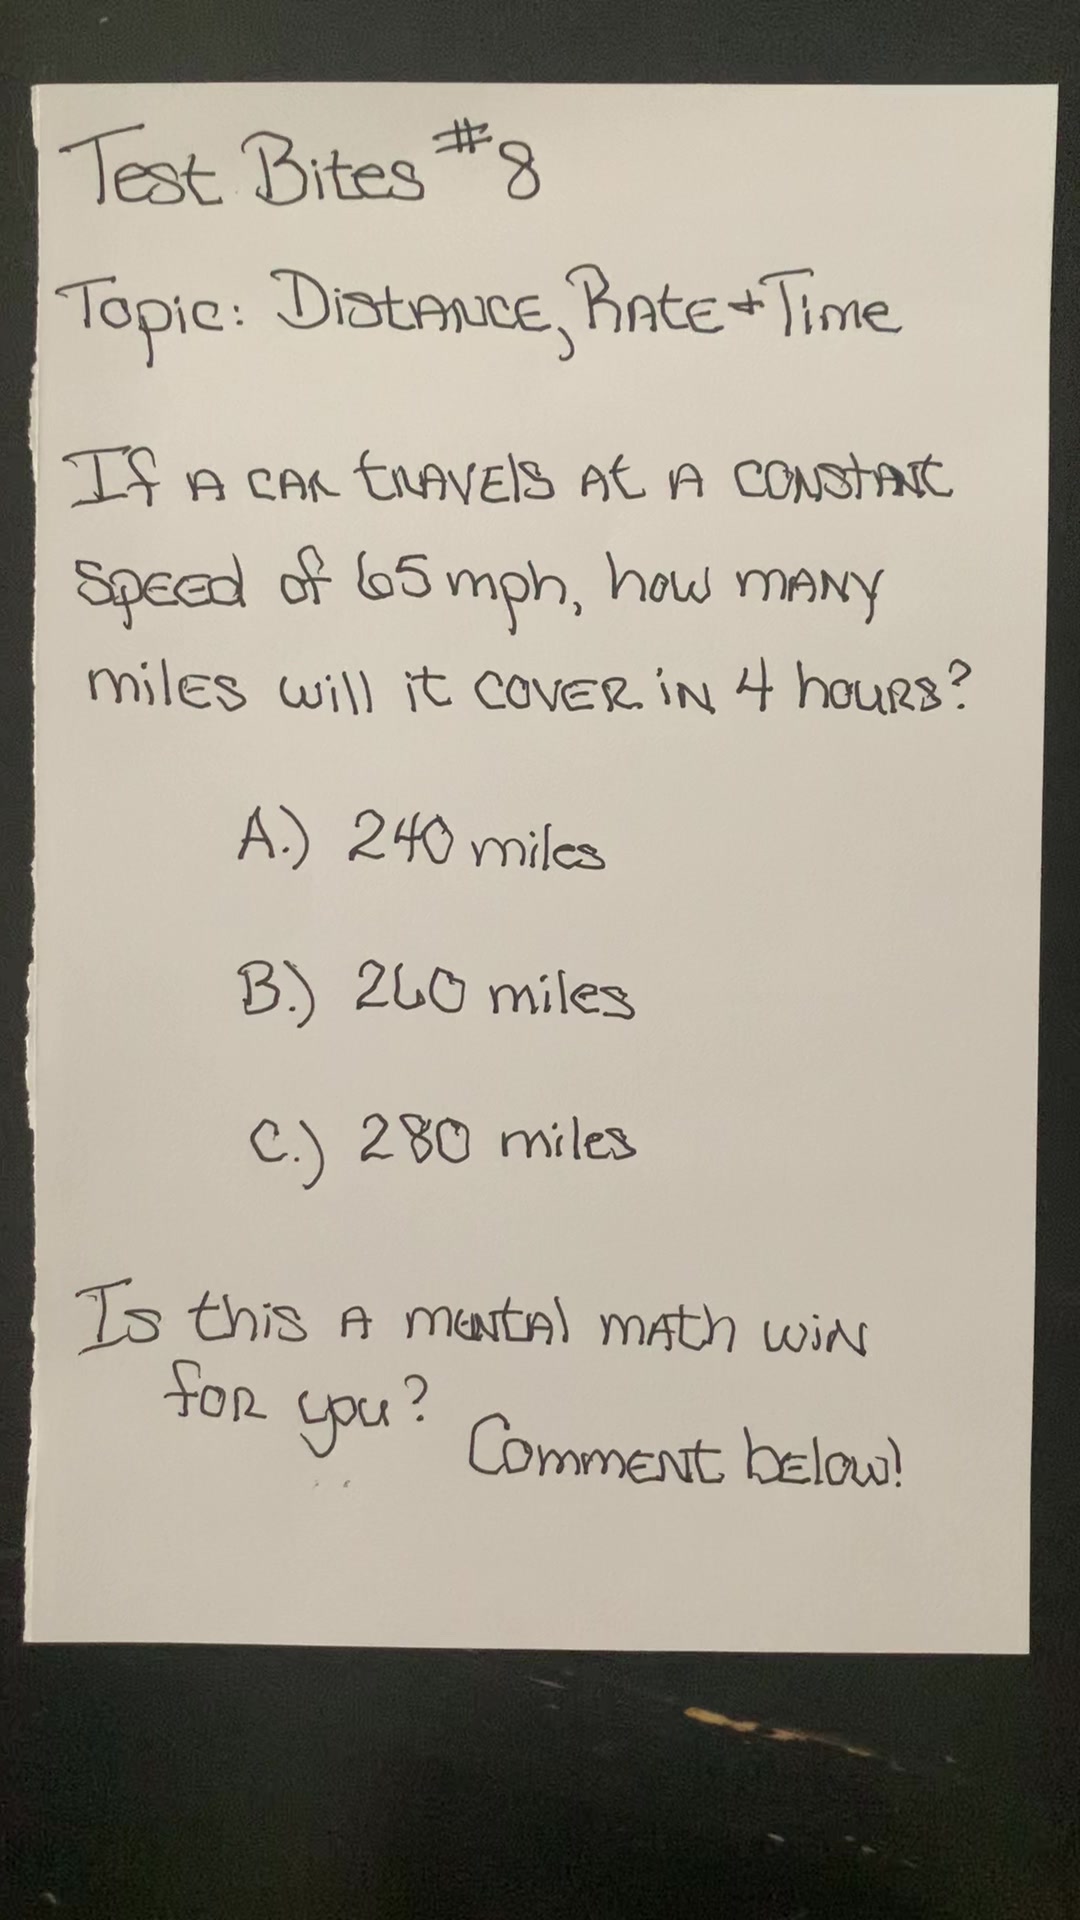 Test Bites #8
Topic: Distance, Rate + Time
If a car travels at a constant
speed of 65 mph, how many
miles will it cover in 4 hours?
A.) 240 miles
B.) 260 miles
C.) 280 miles
Is this a mental math win
for you?
Comment below!